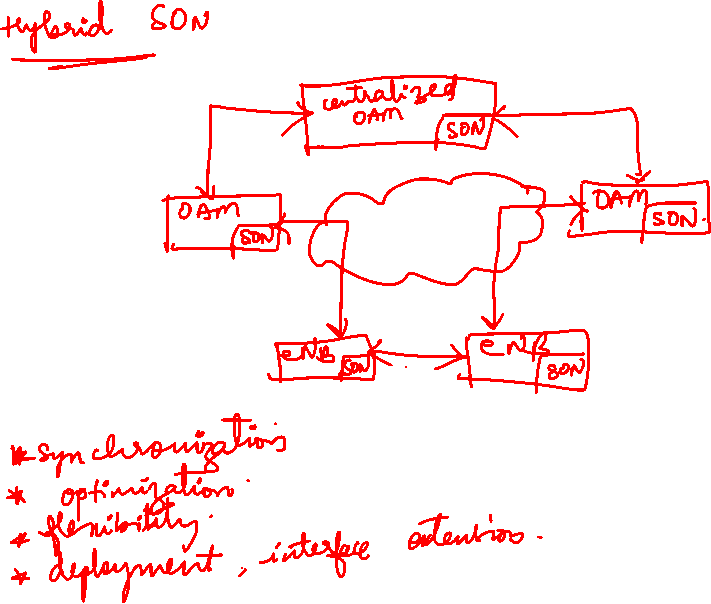 Hybrid SON
centralized
OAM
SON
OAM
SON
OAM
SON
eNB
SON
eNB
SON
* synchronization
* optimization.
* flexibility.
* deployment, interface extension.